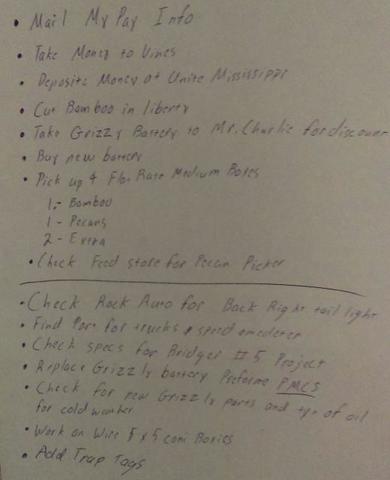 • Mail My Pay Info
• Take Money to Vines
• Deposite Money at Unite Mississippi
• Cut Bamboo in liberty
• Take Grizzly Battery to Mr. Charlie for discover
• Buy new battery
• Pick up 4 Fla. Rate Medium Boxes
1.- Bamboo
1 - Pecans
2 - Extra
• Check Feed store for Pecan Picker
• Check Rock Auto for Back Right tail light
• Find Part for trucks speedameder
• Check specs for Bridger #5 Project
• Replace Grizzly battery Preforme PMCS
• Check for new Grizzly parts and type of oil
for cold weather
• Work on Wire 5 x 5 coni Boxies
• Add Trap Tags